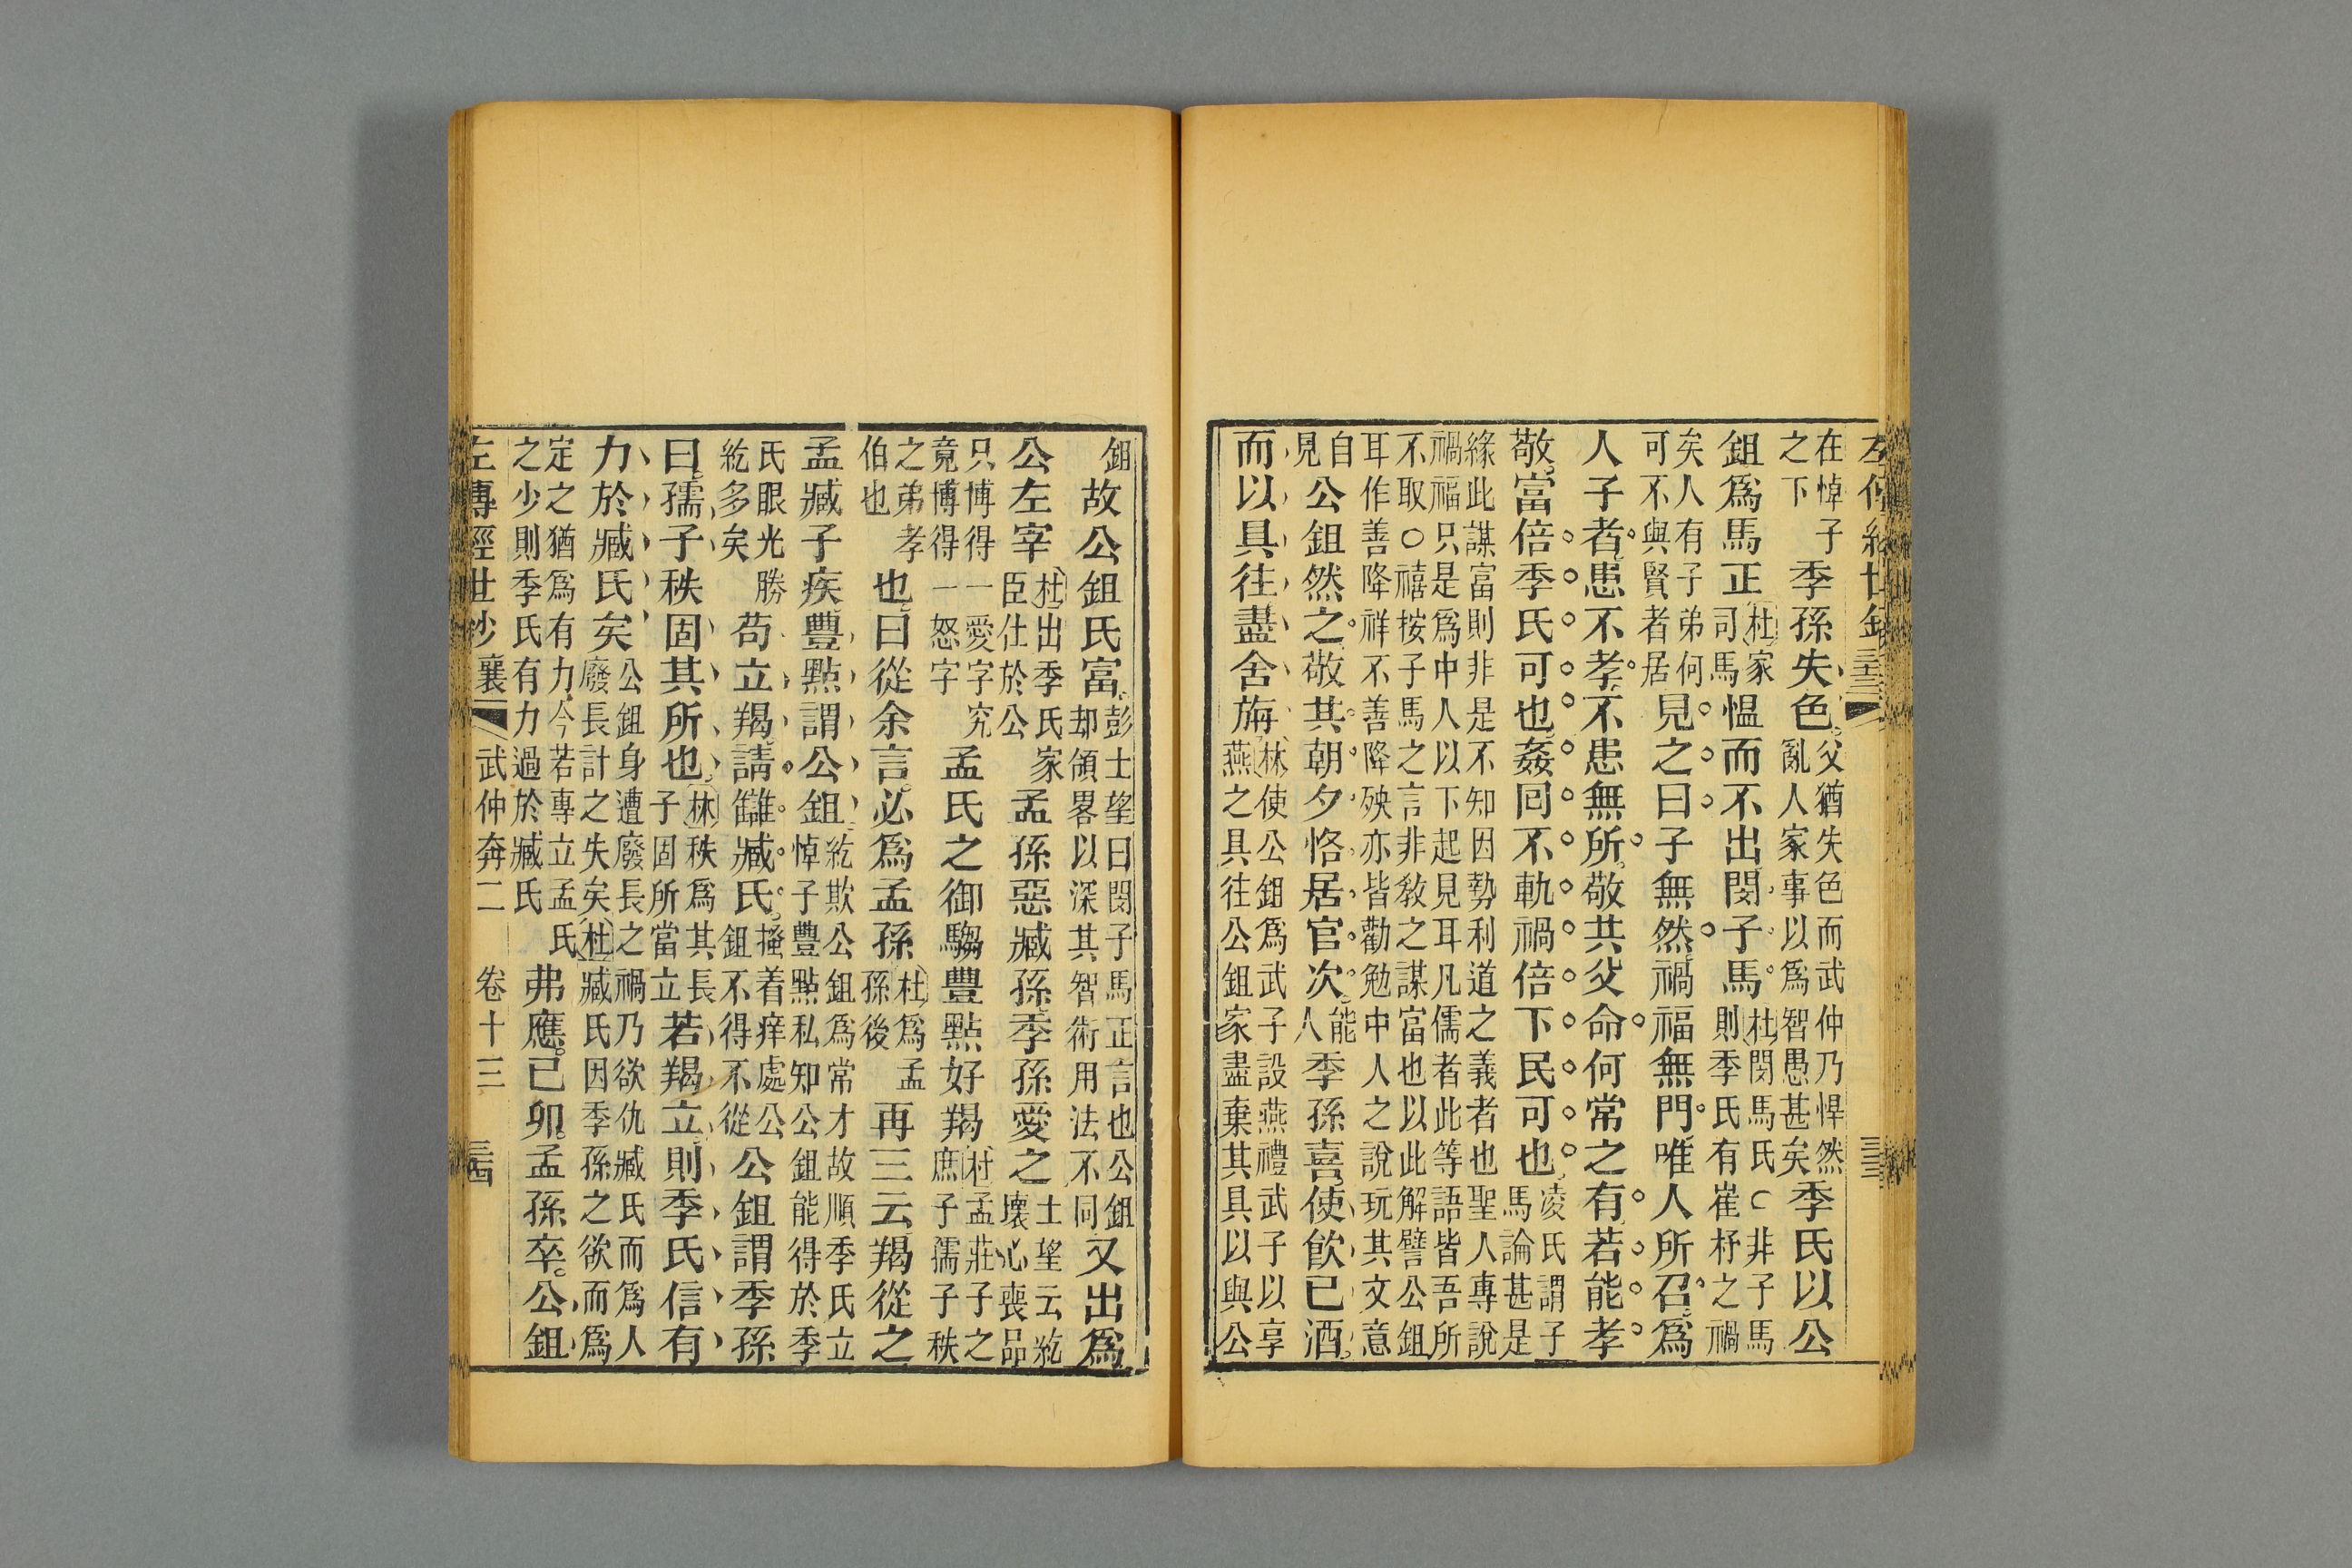 在悼子
之下
季孫失色
父猶失色而武仲乃悍然
亂人家事以爲智愚甚矣
季氏以公
鉏爲馬正
杜家
司馬
愠而不出閔子馬
杜閔馬氏○非子馬
則季氏有崔杼之禍
矣人有子弟何
可不與賢者居
見之曰子無然禍福無門唯人所召爲
人子者患不孝不患無所敬共父命何常之有若能孝
敬富倍季氏可也姦回不軌禍倍下民可也
凌氏謂子
馬論甚是
緣此謀富則非是不知因勢利道之義者也聖人專說
禍福只是爲中人以下起見耳凡儒者此等語皆吾所
不取○禧按子馬之言非敎之謀富也以此解譬公鉏
耳作善降祥不善降殃亦皆勸勉中人之說玩其文意
自
見
公鉏然之敬共朝夕恪居官次
能
人
季孫喜使飲已酒
而以具往盡舍旃
林使公鉏爲武子設燕禮武子以享
燕之具往公鉏家盡棄其具以與公
鉏
故公鉏氏富
彭士望曰閔子馬正言也公鉏
却領畧以深其智術用法不同
又出爲
公左宰
杜出季氏家
臣仕於公
孟孫惡臧孫季孫愛之
士望云紇
壞心喪品
只博得一愛字究
竟博得一怒字
孟氏之御騶豐點好羯
杜孟莊子之
庶子孺子秩
之弟孝
伯也
也曰從余言必爲孟孫
杜爲孟
孫後
再三云羯從之
孟臧子疾豐點謂公鉏
紇欺公鉏爲常才故順季氏立
悼子豐點私知公鉏能得於季
氏眼光勝
紇多矣
苟立羯請讎臧氏
搔着痒處公
鉏不得不從
公鉏謂季孫
曰孺子秩固其所也
林秩爲其長
子固所當立
若羯立則季氏信有
力於臧氏矣
公鉏身遭廢長之禍乃欲仇臧氏而爲人
廢長計之失矣杜臧氏因季孫之欲而爲
定之猶爲有力今若專立孟氏
之少則季氏有力過於臧氏
弗應己卯孟孫卒公鉏
左傳經世鈔 襄 武仲奔二 卷十三